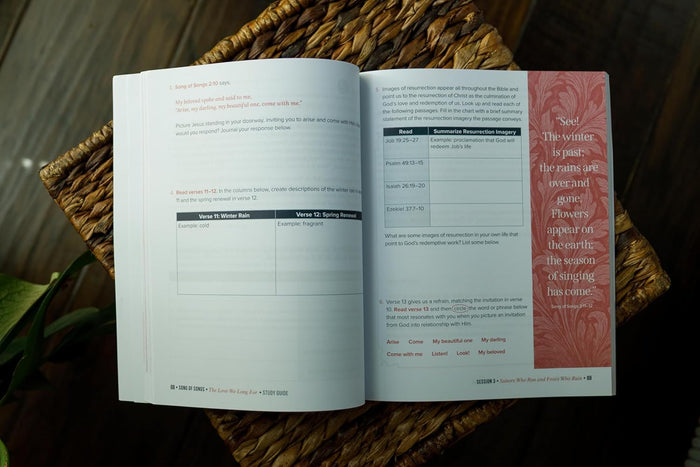 3. Song of Songs 2:10 says,
My beloved spoke and said to me,
"Arise, my darling, my beautiful one, come with me."
Picture Jesus standing in your doorway, inviting you to arise and come with Him.
would you respond? Journal your response below.
4. Read verses 11–12. In the columns below, create descriptions of the winter rain in
11 and the spring renewal in verse 12.
Verse 11: Winter Rain
Verse 12: Spring Renewal
Example: cold
Example: fragrant
SONG OF SONGS • The Love We Long For • STUDY GUIDE
5. Images of resurrection appear all throughout the Bible and
point us to the resurrection of Christ as the culmination of
God's love and redemption of us. Look up and read each of
the following passages. Fill in the chart with a brief summary
statement of the resurrection imagery the passage conveys.
Read
Summarize Resurrection Imagery
Job 19:25–27
Example: proclamation that God will
redeem Job's life
Psalm 49:13–15
Isaiah 26:19–20
Ezekiel 37:7–10
What are some images of resurrection in your own life that
point to God's redemptive work? List some below.
6. Verse 13 gives us a refrain, matching the invitation in verse
10. Read verse 13 and then circle the word or phrase below
that most resonates with you when you picture an invitation
from God into relationship with Him.
Arise Come My beautiful one My darling
Come with me Listen! Look! My beloved
"See!
The winter
is past;
the rains are
over and
gone.
Flowers
appear on
the earth;
the season
of singing
has come."
Song of Songs 2:11–12
SESSION 3 • Suitors Who Run and Foxes Who Ruin •